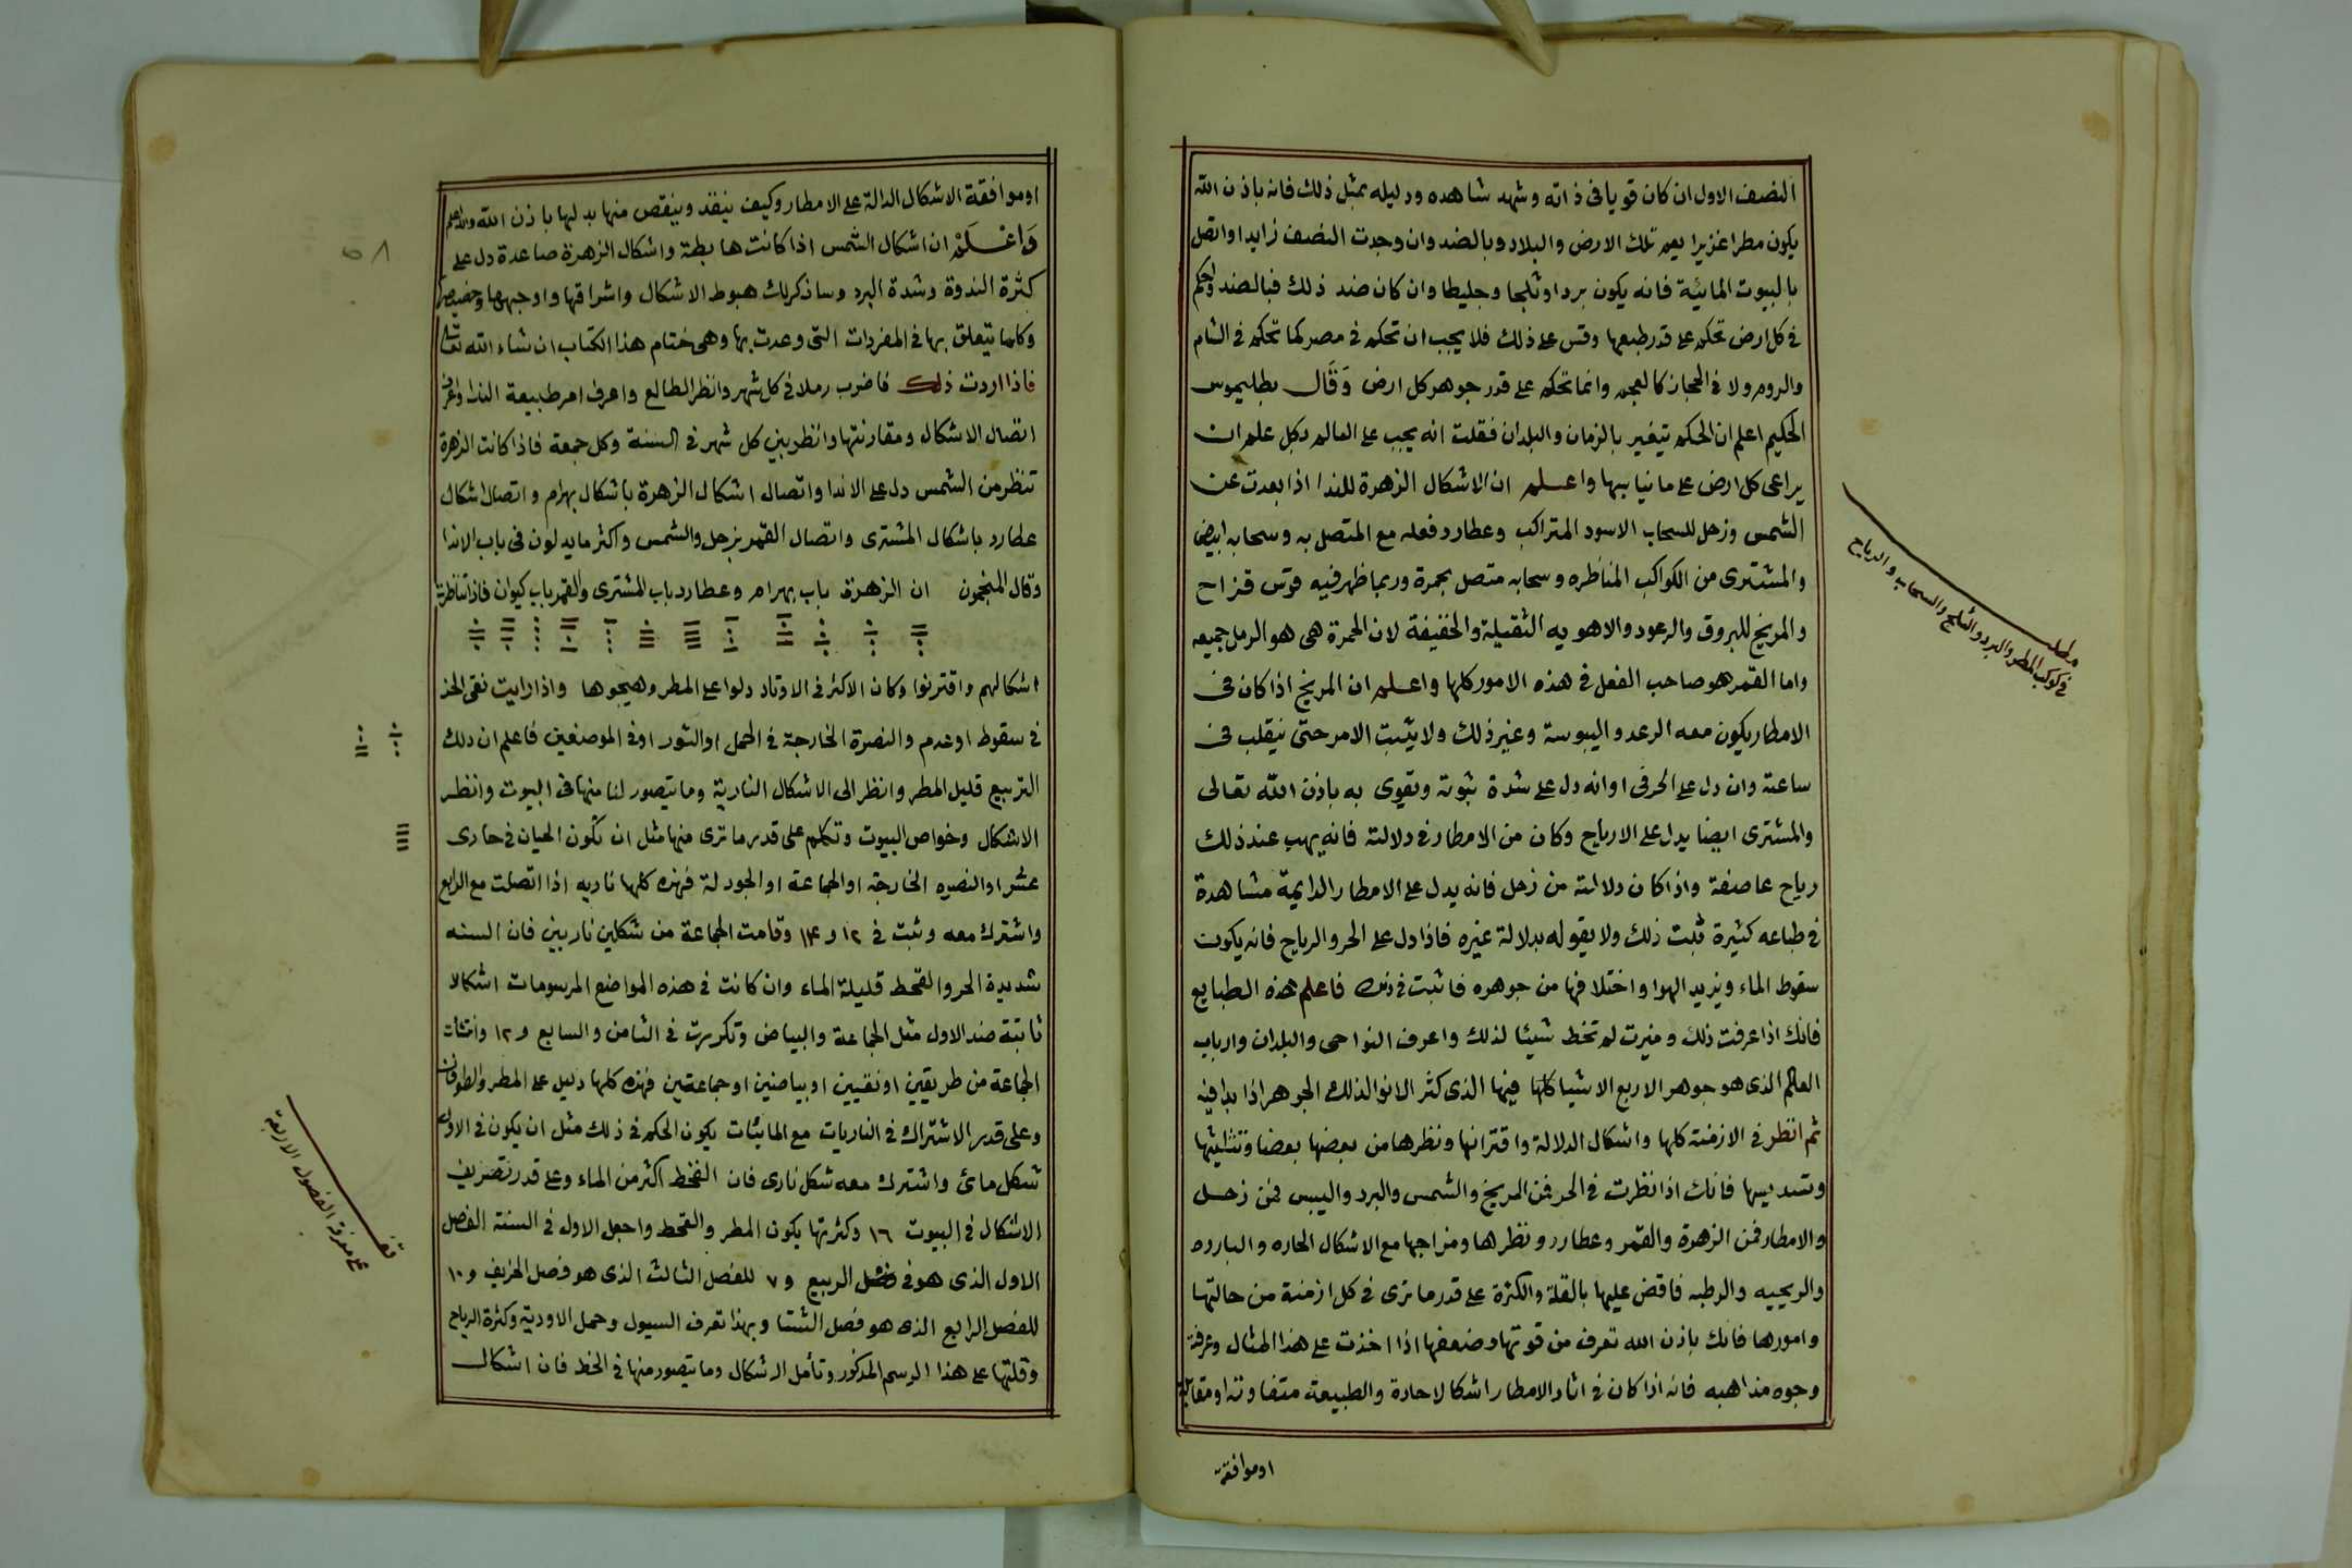 النصف الاول ان كان قويا فى ذاته وشهد شاهده ودليله بمثل ذلك فانه باذن الله
يكون مطرا غزيرا يعم تلك الارض والبلاد وبالضد وان وجدت النصف زايدا واتصل
بالبيوت المائية فانه يكون بردا وثلجا وجليطا وان كان ضد ذلك فبالضد واحكم
فى كل ارض تحكم على قدر طبعها وقس على ذلك فلا يجب ان تحكم فى مصر كما تحكم فى الشام
والروم ولا فى الحجاز كالعجم وانما تحكم على قدر جوهر كل ارض وقال بطليموس
الحكيم اعلم ان الحكم يتغير بالزمان والبلدان فقلت انه يجب على العالم بكل علم ان
يراعى كل ارض على ما يناسبها واعلم ان الاشكال الزهرة للندا اذا بعدت عن
الشمس وزحل للسحاب الاسود المتراكب وعطارد فعله مع المتصل به وسحابه ابيض
والمشترى من الكواكب المناظره وسحابه متصل بحمرة وربما ظهر فيه قوس قزاح
والمريخ للبروق والرعود والاهويه الثقيلة والخفيفة لان الحمرة هى هو الرمل جميعه
واما القمر هو صاحب الفعل فى هذه الامور كلها واعلم ان المريخ اذا كان فى
الامطار يكون معه الرعد واليبوسة وغير ذلك ولا يثبت الامر حتى ينقلب فى
ساعته وان دل على الحر فى اوانه دل على شدة ثبوته وتقوى به باذن الله تعالى
والمشترى ايضا يدل على الارياح وكان من الامطار فى دلالته فانه يهب عند ذلك
رياح عاصفة واذا كان دلالته من زحل فانه يدل على الامطار الدايمة مشاهدة
فى طباعه كثيرة ثبت ذلك ولا يقوله بدلالة غيره فاذا دل على الحر والرياح فانه يكون
سقوط الماء ويزيد الهوا واختلافها من جوهره فاثبت فى ذلك فاعلم هذه الطبايع
فانك اذا عرفت ذلك وميزت لم تخط شيئا لذلك واعرف النواحى والبلدان وارباب
العالم الذى هو جوهر الاربع الاشيا كلها فيها الذى كثر الانوا لذلك الجوهر اذا بدا فيه
ثم انظر فى الازمنة كلها واشكال الدلالة واقترانها ونظرها من بعضها بعضا وتثليثها
وتسديسها فانك اذا نظرت فى الحر فمن المريخ والشمس والبرد واليبس فمن زحل
والامطار فمن الزهرة والقمر وعطارد ونظرها ومزاجها مع الاشكال الحاره والبارده
والريحيه والرطبه فاقض عليها بالقلة والكثرة على قدر ما ترى فى كل ازمنة من حالتها
وامورها فانك باذن الله تعرف من قوتها وضعفها اذا اخذت على هذا المثال وعرفة
وجوه مذاهبه فانه اذا كان فى اثار الامطار اشكالا حادة والطبيعة متفاوته او مقابلة
اوموافقة
مطلب
فى كوكب المطر والبرد والثلج والسحاب والرياح
اوموافقة الاشكال الدالة على الامطار وكيف ينفذ وينقص منها بدلها باذن الله والله اعلم
واعلم ان اشكال الشمس اذا كانت هابطة واشكال الزهرة صاعدة دل على
كثرة الندوة وشدة البرد وساذكر لك هبوط الاشكال واشراقها واوجهها وحضيضها
وكلما يتعلق بها فى المفردات التى وعدت بها وهى ختام هذا الكتاب ان شاء الله تعالى
فاذا اردت ذلك فاضرب رملا فى كل شهر وانظر الطالع واعرف امر طبيعة الندا واعرف
اتصال الاشكال ومقارنتها وانظر بين كل شهر فى السنة وكل جمعة فاذا كانت الزهرة
تنظر من الشمس دل على الاندا واتصال اشكال الزهرة باشكال بهرام واتصال اشكال
عطارد باشكال المشترى واتصال القمر بزحل والشمس واكثر ما يدلون فى باب الاندا
وقال المنجمون ان الزهرة باب بهرام وعطارد باب المشترى والقمر باب كيوان فاذا تناظرت
اشكالهم واقترنوا وكان الاكثر فى الاوتاد دلوا على المطر وهيجوها واذا رايت نقى الخد
فى سقوط او عدم والنصرة الخارجة فى الحمل او الثور او فى الموضعين فاعلم ان ذلك
التربيع قليل المطر وانظر الى الاشكال النارية وما يتصور لنا منها فى البيوت وانظر
الاشكال وخواص البيوت وتكلم على قدر ما ترى منها مثل ان تكون الحيان فى حادى
عشر او النصره الخارجة او الجماعة او الجودلة فهذه كلها ناريه اذا اتصلت مع الرابع
واشترك معه وثبت فى ١٢ و ١٤ وقامت الجماعة من شكلين ناريين فان السنه
شديدة الحر والقحط قليلة الماء وان كانت فى هذه المواضع المرسومات اشكالا
ثابتة ضد الاول مثل الجماعة والبياض وتكررت فى الثامن والسابع و ١٢ وانتشات
الجماعة من طريقين او نقيين او بياضين او جماعتين فهذه كلها دليل على المطر والطوفان
وعلى قدر الاشتراك فى الناريات مع المائيات يكون الحكم فى ذلك مثل ان يكون فى الاول
شكل مائى واشترك معه شكل نارى فان القحط اكثر من الماء وعلى قدر تصريف
الاشكال فى البيوت ١٦ وكثرتها يكون المطر والقحط واجعل الاول فى السنة الفصل
الاول الذى هو فى فصل الربيع و ٧ للفصل الثالث الذى هو فصل الخريف و ١٠
للفصل الرابع الذى هو فصل الشتا وبهذا تعرف السيول وحمل الاودية وكثرة الرياح
وقلتها على هذا الرسم المذكور وتأمل الاشكال وما يتصور منها فى الخط فان اشكال
قف
على معرفة الفصول الاربعة